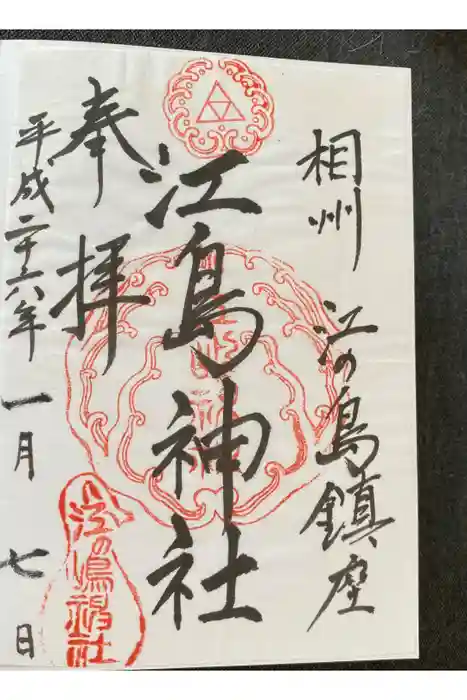 相州 江の島鎮座
江島神社
奉拝
平成二十六年 一月 七 日